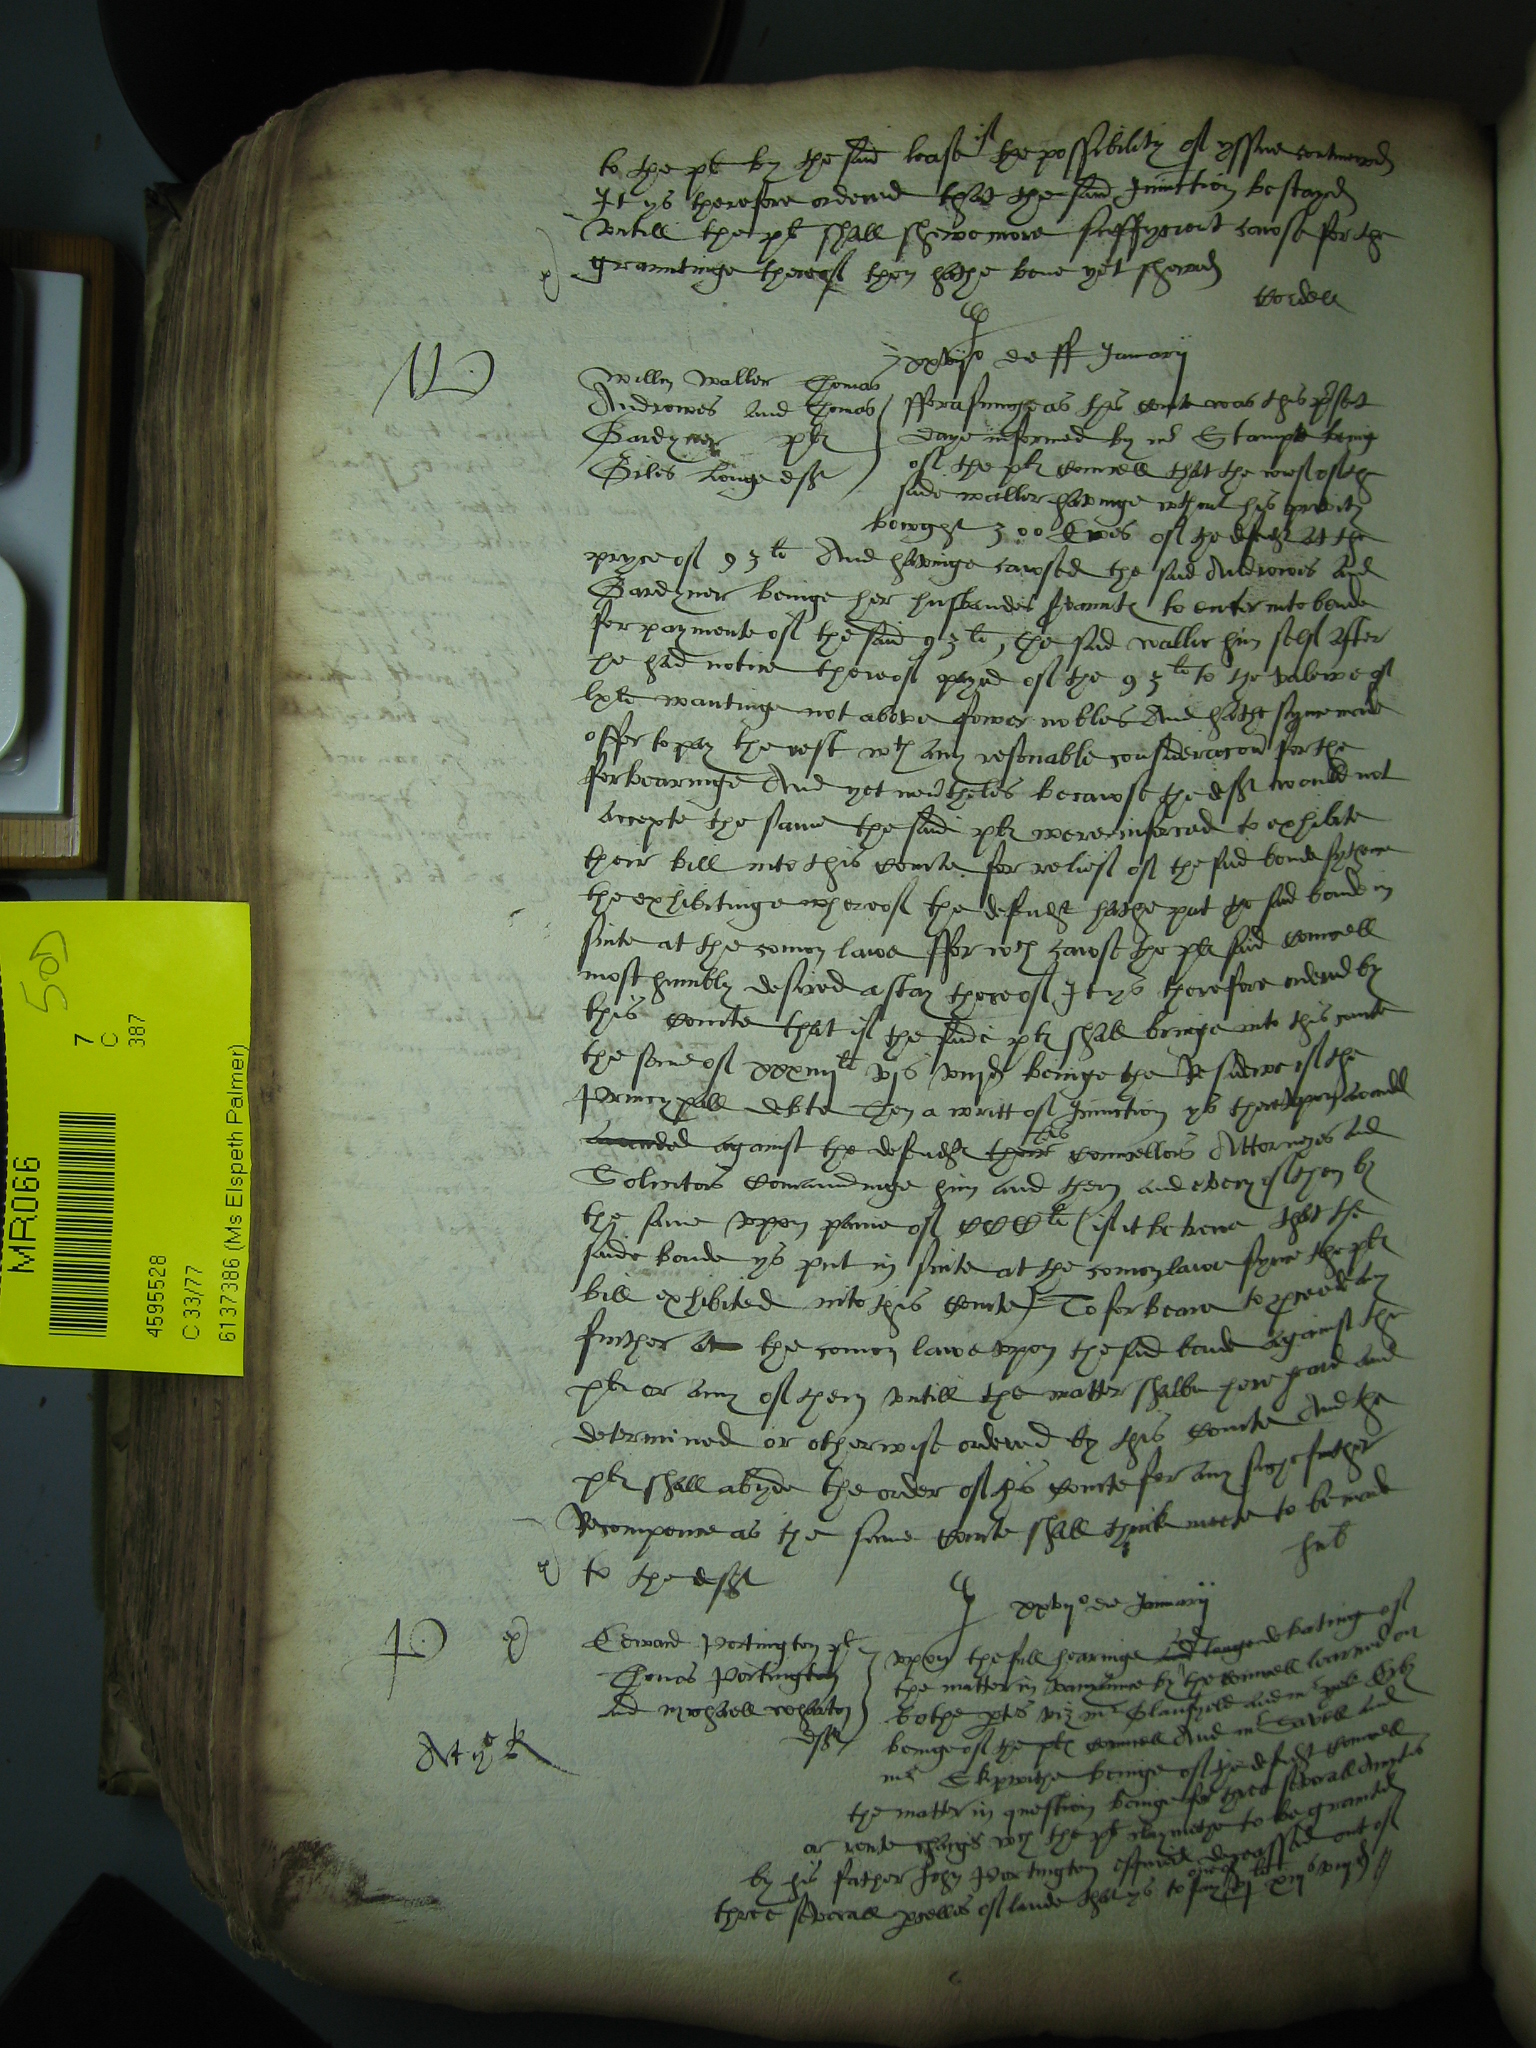 to the pl by the said lease if the possibility of yssue contynewed
It ys therefore ordered that the said Iniunction be stayed
untill the pl shall shewe more suffycient cawse for the
grauntinge thereof then hathe bene yet shewed
Cordell
xxvijo die Januarij
Willm Waller Thomas
Androwes and Thomas
Gardyner pls
Giles Longe deft
fforasmuche as this Courte was this pñt
daye informed by mr Stampe being
of the pls Counsell that the wief of the
saide Waller havinge wthout his privity
bowght 300 Ewes of the defendt at the
pryce of 93li And havinge cawsed the said Androwes and
Gardyner beinge her husbandes servantes to enter into bonde
for payment of the said 93li, the said Waller him self after
he had notice thereof payed of the 93li to the valewe of
lxli wantinge not above fower nobles And hathe synce made
offer to pay the rest wth any resonable consideracon for the
forbearinge And yet nevrtheles becawse the deft would not
accepte the same the said pls were inforced to exhibite
their bill into this Courte for relief of the said bonde sythence
the exhibitinge whereof the defendt hathe put the said bonde in
suite at the comon lawe ffor wch cawse the pls said Counsell
most humbly desired a stay thereof It ys therefore ordered by
this Courte that if the saide pls shall bringe into this Courte
the some of xxxiiijli vjs viijd beinge the Residewe of the
Pryncypall debte Then a writt of Iniunction ys thereupon awarded
awarded against the defendt their his Counsellors Attorneyes and
Solicitors Comaundinge him and them and every of them by
the same upon paine of CCCli (if it be trewe that the
saide bonde ys put in suite at the comon lawe synce the pls
bill exhibited into this Courte) To forbeare to procede any
further at the comon lawe upon the said bonde against the
pls or any of them untill the matter shalbe here heard and
determined or otherwise ordered by this Courte And the
pls shall abyde the order of this Courte for any suche further
Recompence as the same Courte shall think meete to be made
to the deft
xxvijo die Januarij
Edward Portington pl
Thomas Portington
and Michaell Wharton
defts
upon the full hearinge and longe debatinge of
the matter in variaunce by the Counsell learned on
bothe pts viz mr
beinge of the pls Counsell And mr Savell and
mr Skipwithe beinge of the defendts Counsell
the matter in question beinge for three severall Anuities
or rente charges wch the pl claymethe to be graunted
by his father John Portington esquier deceassed out of
three severall pcelles of lande that ys to say one of vjli xiijs iiijd
MR066
4595528
7
C
387
C 33/77
6137386 (Ms Elspeth Palmer)